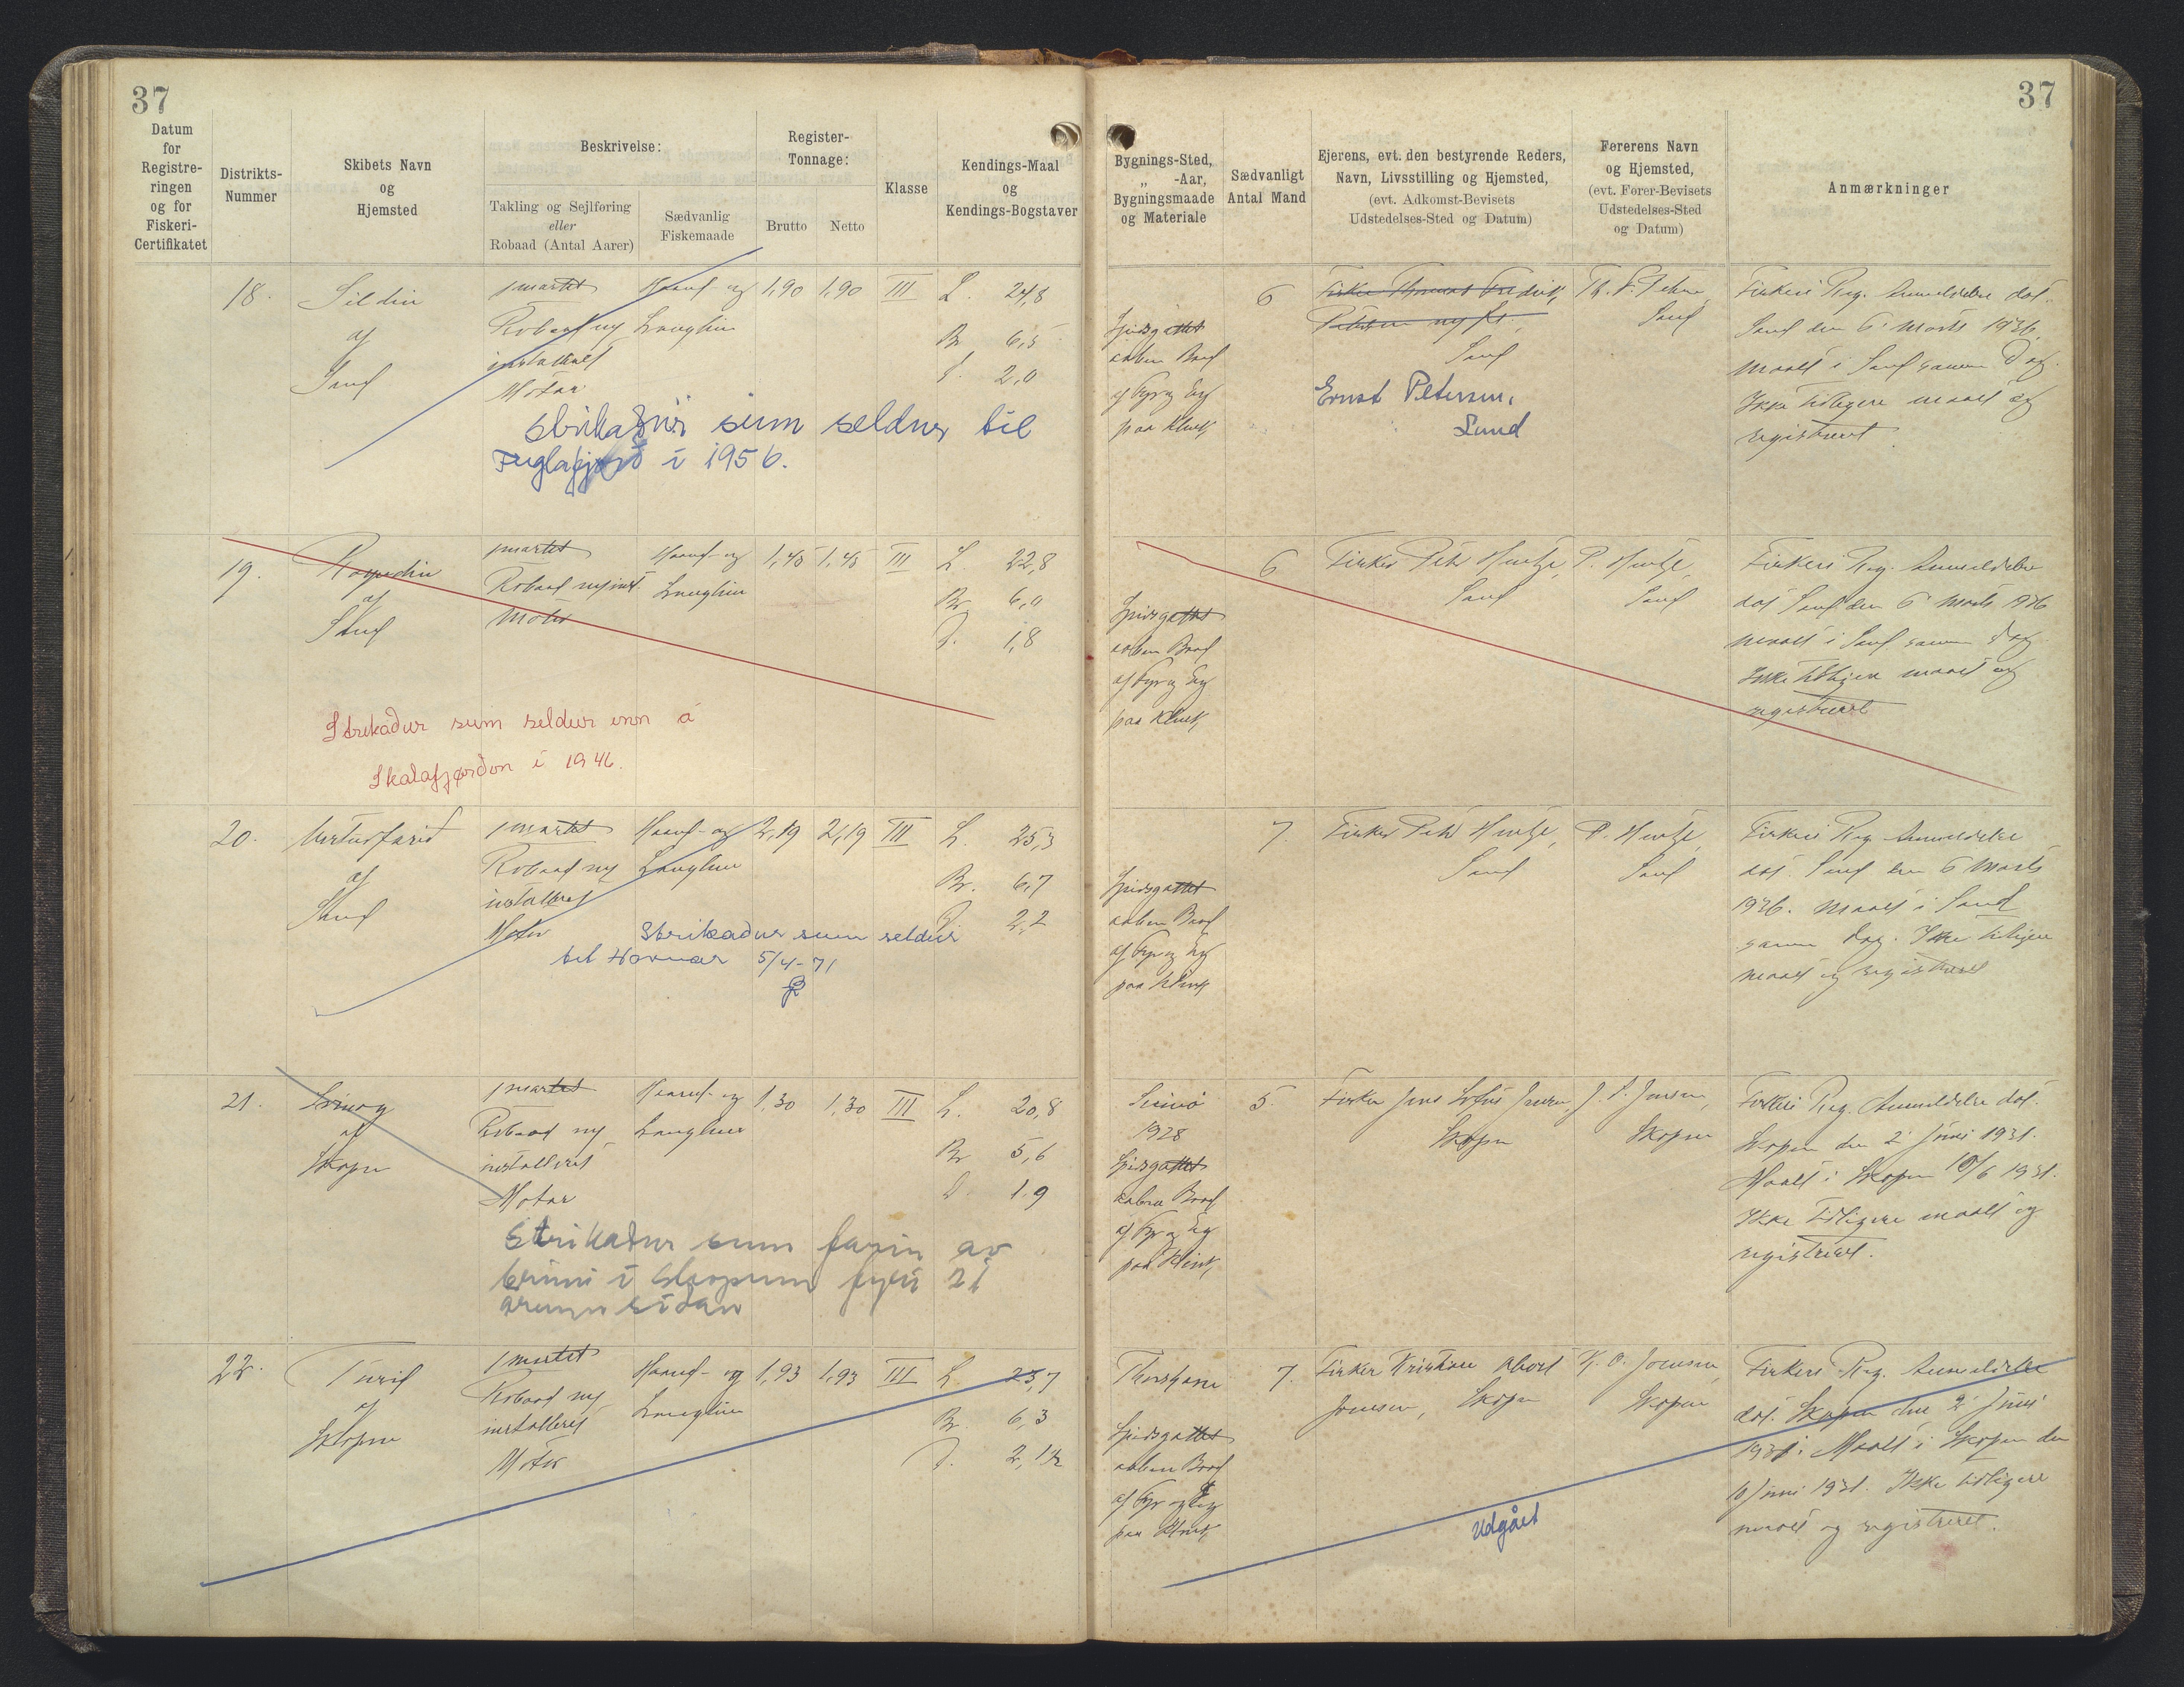 37
37
Datum
for
Registre-
ringen
og for
Fiskeri-
Certifikatet
Distrikts-
Nummer
Skibets Navn
og
Hjemsted
Beskrivelse:
Takling og Sejlføring
eller
Robaad (Antal Aarer)
Sædvanlig
Fiskemaade
Register-
Tonnage:
Brutto
Netto
Klasse
Kendings-Maal
og
Kendings-Bogstaver
Bygnings-Sted,
„ -Aar,
Bygningsmaade
og Materiale
Sædvanligt
Antal Mand
Ejerens, evt. den bestyrende Reders,
Navn, Livsstilling og Hjemsted,
(evt. Adkomst-Bevisets
Udstedelses-Sted og Datum)
Førerens Navn
og Hjemsted,
(evt. Fører-Bevisets
Udstedelses-Sted
og Datum)
Anmærkninger
18.
Sildin
af
Sand
smartet
Robaad ny
installeret
Motor
Haand- og
Langline
1,90 1,90 III
L. 24,8
Br. 6,5
D. 2,0
strikaður sum seldur til
Fuglafjørð í 1956.
Spidsgattet
aaben Baad
af Fyr og Eg
paa Klink
6
Fisker Thomas Fredrik
Sand
Ernst Petersen,
Sand
Sand
Fiskeri Reg. Anmeldelse dat.
Sand den 6' Marts 1936
maalt i Sand samme Dag.
Ikke tidligere maalt og
registreret
19.
af
Sand
smartet
Robaad ny inst.
Motor
Haand- og
Langline
1,45 1,45 III
L. 22,8
Br. 6,0
D. 1,8
Strikaður sum seldur inn á
Skálafjørðin í 1946.
Spidsgattet
aaben Baad
af Fyr og Eg
paa Klink
6
Fisker Peter
Sand
Sand
Fiskeri Reg. Anmeldelse
dat Sand den 6' Marts 1936
maalt i Sand samme Dag
Ikke tidligere maalt og
registreret
20.
af
Sand
smartet
Robaad ny
installeret
Motor
Haand- og
Langline
2,19 2,19 III
L. 25,3
Br. 6,7
D. 2,2
Strikaður sum seldur
til Havnar 5/4-71
Spidsgattet
aaben Baad
af Fyr og Eg
paa Klink
7.
Fisker Peter
Sand
Sand
Fiskeri Reg. Anmeldelse
dat. Sand den 6 Marts
1936. Maalt i Sand
samme Dag. Ikke tidligere
maalt og registreret
21.
af
Skopen
smartet
Robaad ny
installeret
Motor
Haand- og
Langline
1,30 1,30 III
L. 20,8
Br 5,6
D. 1,9
Strikaður sum farin av
brimi í Skopun fyri 21
árum síðan
1928
Spidsgattet
aaben Baad
af Fyr og Eg
paa Klink
5.
Fisker Jens
Skopen
Jensen,
Skopen
Fiskeri Reg. Anmeldelse dat.
Skopen den 2' Juni 1931.
Maalt i Skopen 10/6 1931.
Ikke tidligere maalt og
registreret.
22.
Turid
af
Skopen
smartet
Robaad ny
installeret
Motor
Haand- og
Langline
1,93 1,93 III
L. 23,7
Br. 6,3
D.
Thorshavn
Spidsgattet
aaben Baad
af Fyr og Eg
paa Klink
7.
Fisker Kristian
Joensen, Skopen
Joensen,
Skopen
Udgået
Fiskeri Reg. Anmeldelse
dat. Skopen den 2' Juni
1931. Maalt i Skopen den
10 Juni 1931. Ikke tidligere
maalt og registreret.